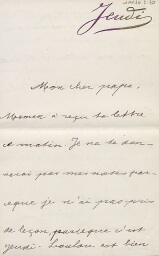 Jeudi
Mon cher papa,
Maman a reçu ta lettre
ce matin. Je ne te don-
nerai pas mes notes par-
ceque je n'ai pas pris
de leçon parceque c'est
jeudi. Loulou est bien